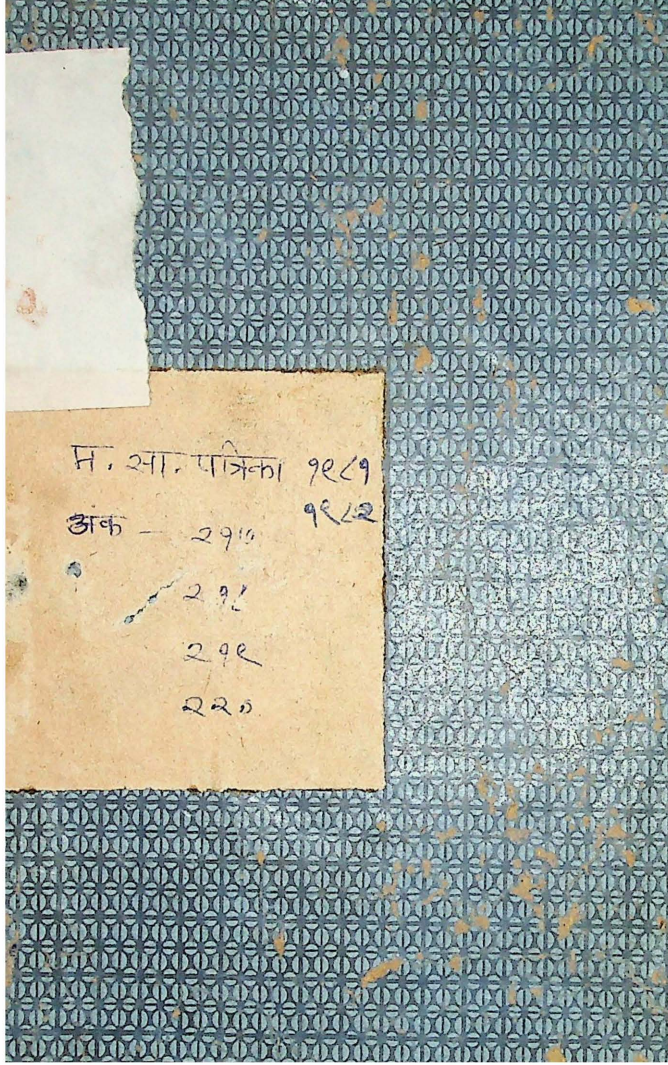 म. सा. पत्रिका १९८१
१९८२
अंक – २१७
२१८
२१९
२२०